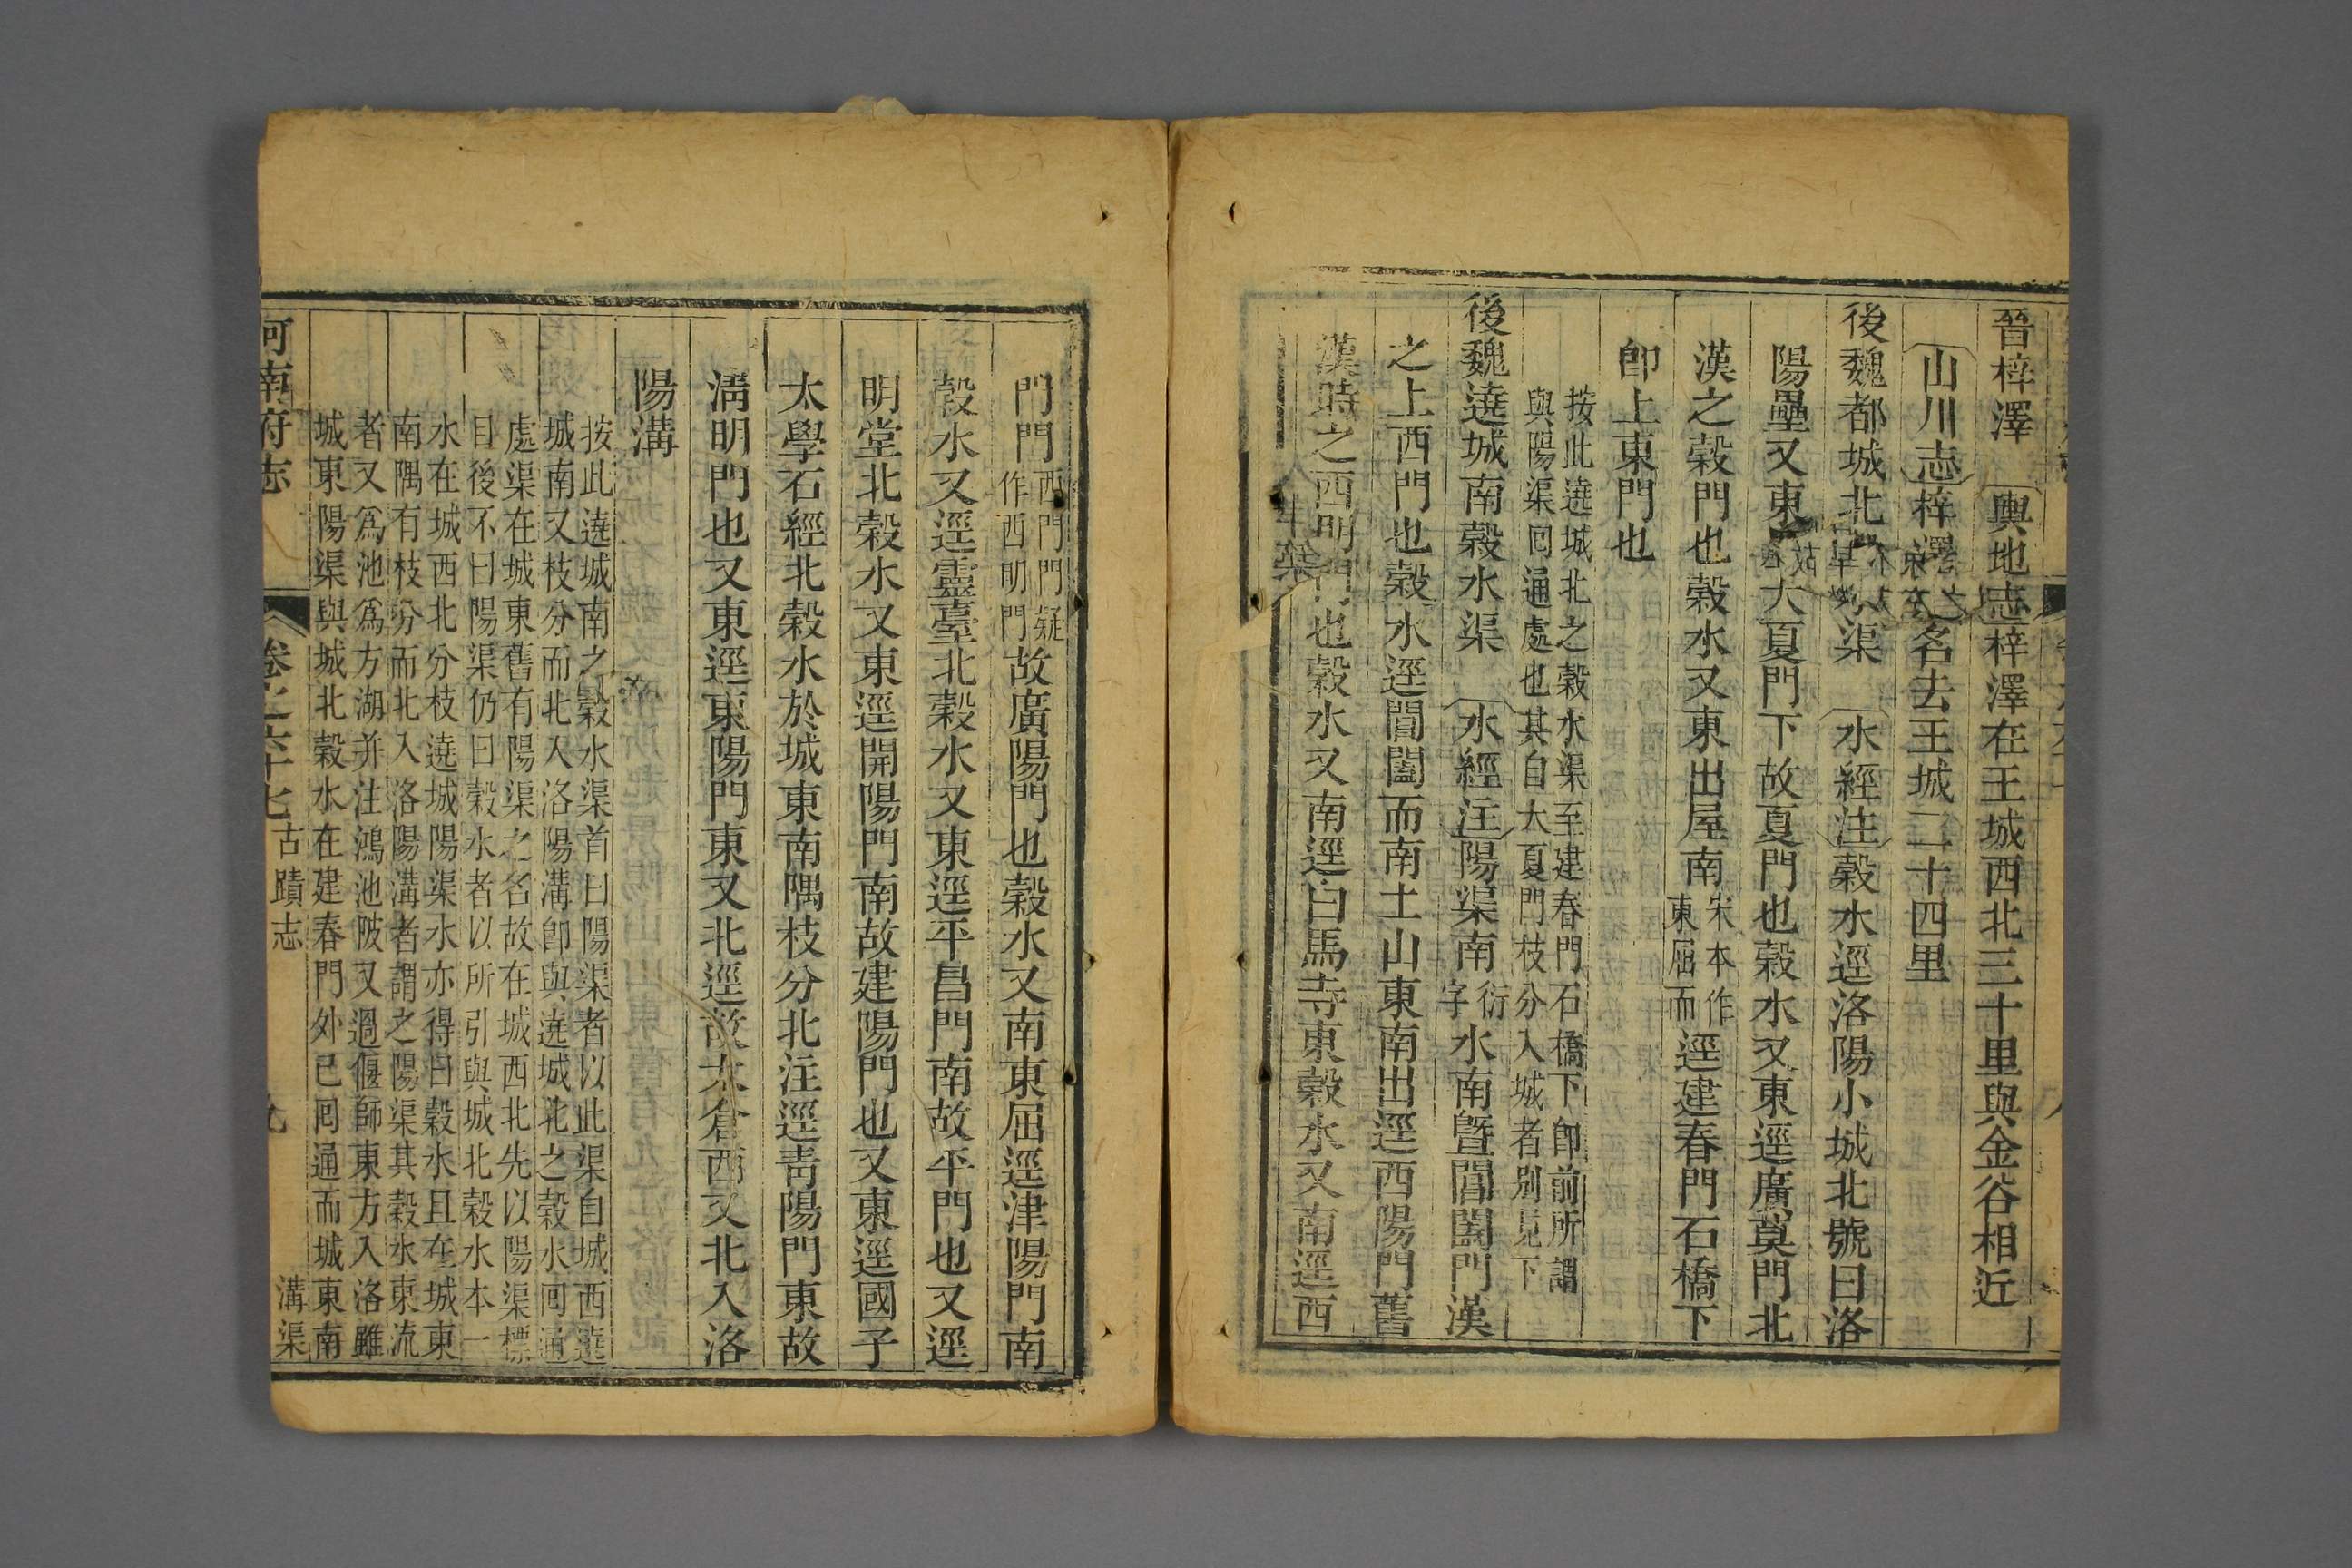 晉梓澤　輿地志梓澤在王城西北三十里與金谷相近
山川志梓澤之名去王城二十四里
後魏都城北渠　水經注穀水逕洛陽小城北號曰洛
陽壘又東大夏門下故夏門也穀水又東逕廣莫門北
漢之穀門也穀水又東出屋南宋本作東屈而逕建春門石橋下
卽上東門也
按此遶城北之穀水渠至建春門石橋下卽前所謂
與陽渠囘通處也其自大夏門枝分入城者別見下
後魏遶城南穀水渠　水經注陽渠南衍字水南曁閶闔門漢
之上西門也穀水逕閶闔而南土山東南出逕西陽門舊
漢時之西明門也穀水又南逕白馬寺東穀水又南逕西
門門西門門疑作西明門故廣陽門也穀水又南東屈逕津陽門南
穀水又逕靈臺北穀水又東逕平昌門南故平門也又逕
明堂北穀水又東逕開陽門南故建陽門也又東逕國子
太學石經北穀水於城東南隅枝分北注逕靑陽門東故
淸明門也又東逕東陽門東又北逕故太倉西又北入洛
陽溝
按此遶城南之穀水渠首曰陽渠者以此渠自城西遶
城南又枝分而北入洛陽溝卽與遶城北之穀水囘通
處渠在城東舊有陽渠之名故在城西北先以陽渠標
目後不曰陽渠仍曰穀水者以所引與城北穀水本一
水在城西北分枝遶城陽渠水亦得曰穀水且在城東
南隅有枝分而北入洛陽溝者謂之陽渠其穀水東流
者又爲池爲方湖并注鴻池陂又過偃師東方入洛雖
城東陽渠與城北穀水在建春門外已囘通而城東南
河南府志　卷之六十七　古蹟志　溝渠　九